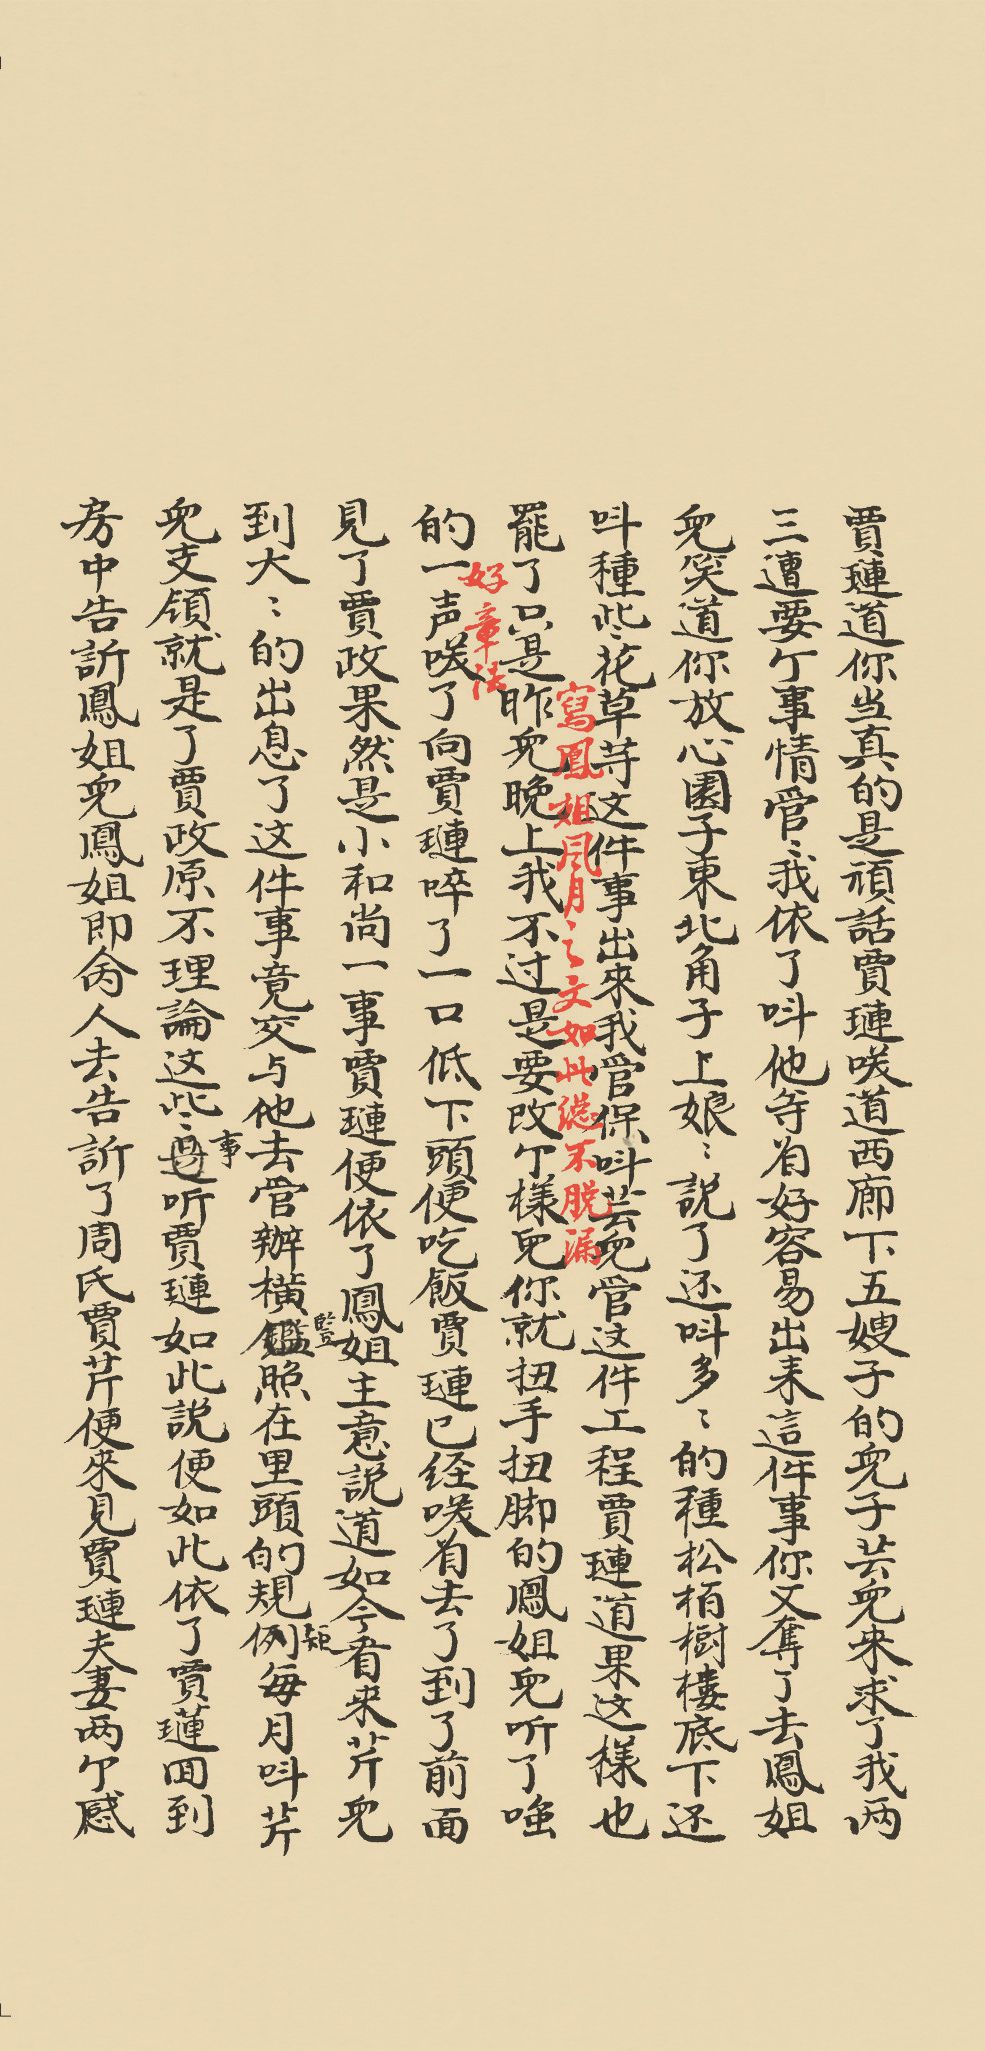 賈璉道你当真的是頑話賈璉咲道西廊下五嫂子的兒子芸兒来求了我两
三遭要个事情管〻我依了呌他等着好容易出来這件事你又奪了去鳳姐
兒笑道你放心園子東北角子上娘〻説了还呌多〻的種松栢樹樓底下还
呌種些花草䓁这件事出来我管保呌芸兒管这件工程賈璉道果这樣也
寫鳳姐風月之文如此總不脱漏
罷了只是昨兒晚上我不过是要改个樣兒你就扭手扭脚的鳳姐兒听了嗤
好章法
的一声咲了向賈璉啐了一口低下頭便吃飯賈璉已经咲着去了到了前面
見了賈政果然是小和尚一事賈璉便依了鳳姐主意説道如今看来芹兒
到大〻的出息了这件事竟交与他去管辦横鑑照在里頭的規例每月呌芹
豎
矩
兒支領就是了賈政原不理論这些〻尋听賈璉如此説便如此依了賈璉回到
事
房中告訴鳳姐兒鳳姐即命人去告訴了周氏賈芹便来見賈璉夫妻两个感